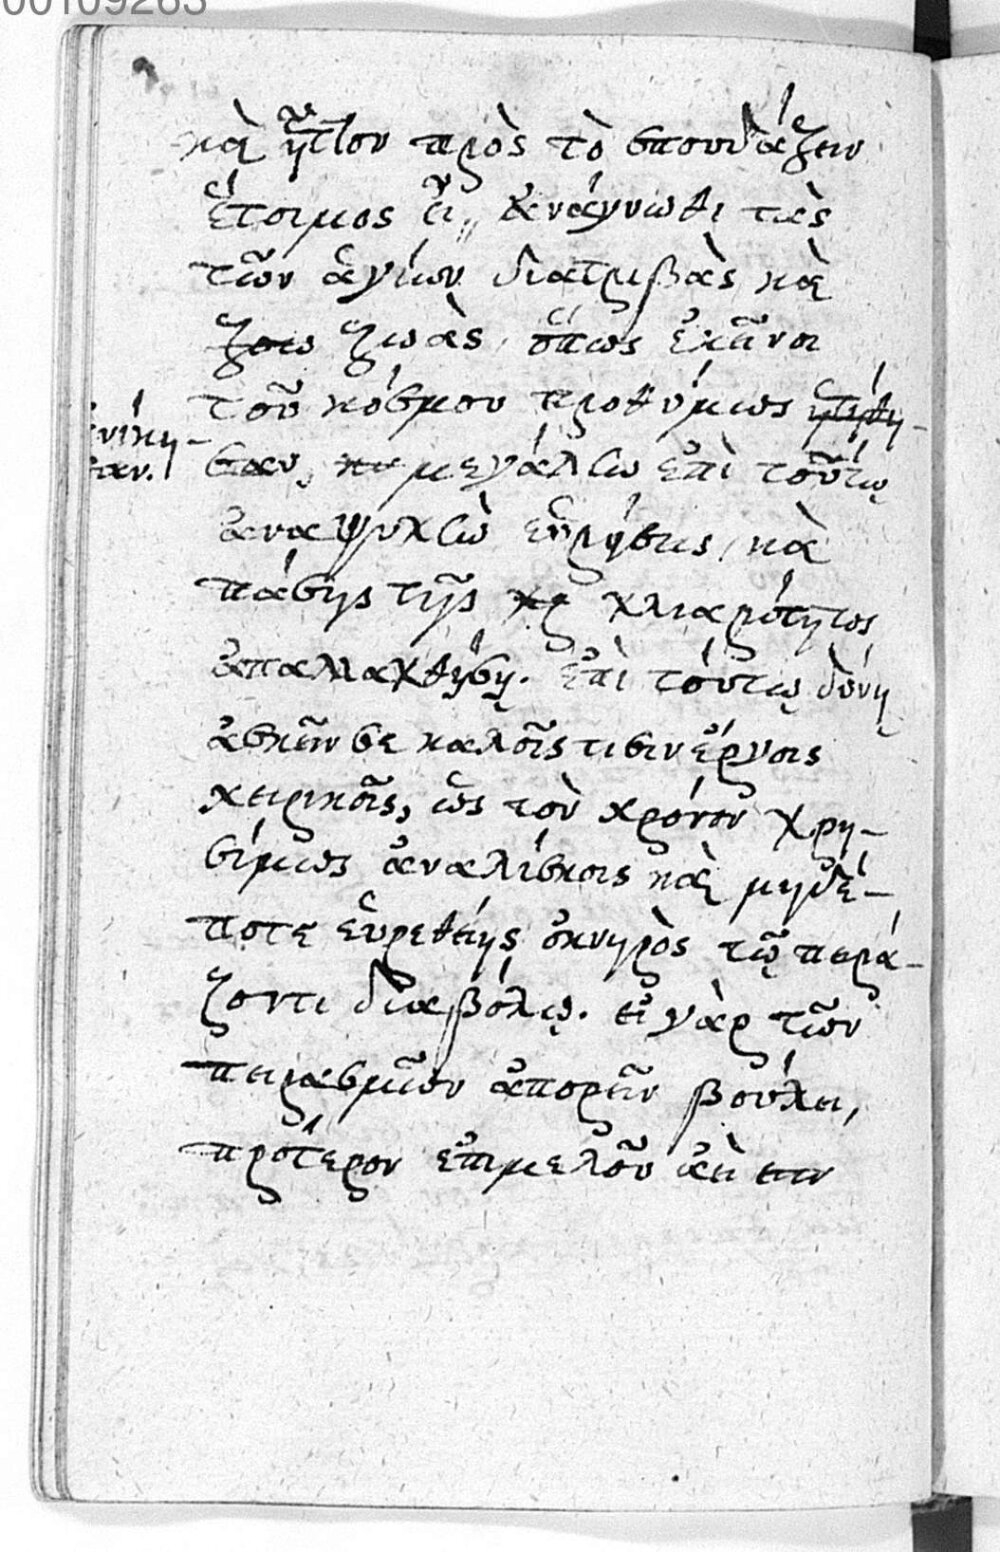 00109263
καὶ ἧττον πρὸς τὸ σπουδάζειν
ἕτοιμος εἶ, ἀνάγνωθι τὰς
τῶν ἁγίων διατριβὰς καὶ
ζοω ζωὰς, ὅπως ἐκεῖνοι
τοῦ κόσμου προθύμως
ἐνίκη-
σαν.
σαν, κα μεγάλην ἐπὶ τούτῳ
ἀναψυχὴν εὑρήσεις, καὶ
πάσης τῆς χρ χλιαρότητος
ἀπαλλαχθήσῃ. ἐπὶ τούτῳ δύνῃ
ἀσκεῖν σε καλοῖς τισιν ἔργοις
χειρικοῖς, ὡς τὸν χρόνον χρη-
σίμως ἀναλίσκοις καὶ μηδέ-
ποτε εὑρεθείης ὀκνηρὸς τῷ πειρά-
ζοντι διαβόλῳ. εἰ γὰρ τῶν
πειρασμῶν ἀπορεῖν βούλει,
πρότερον ἐπιμελοῦ ἀεὶ